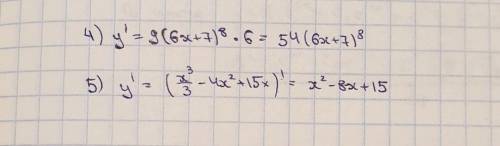 4) y' = 9(6x+7)⁸ · 6 = 54(6x+7)⁸
5) y' = (x³/3 - 4x² + 15x)' = x² - 8x + 15